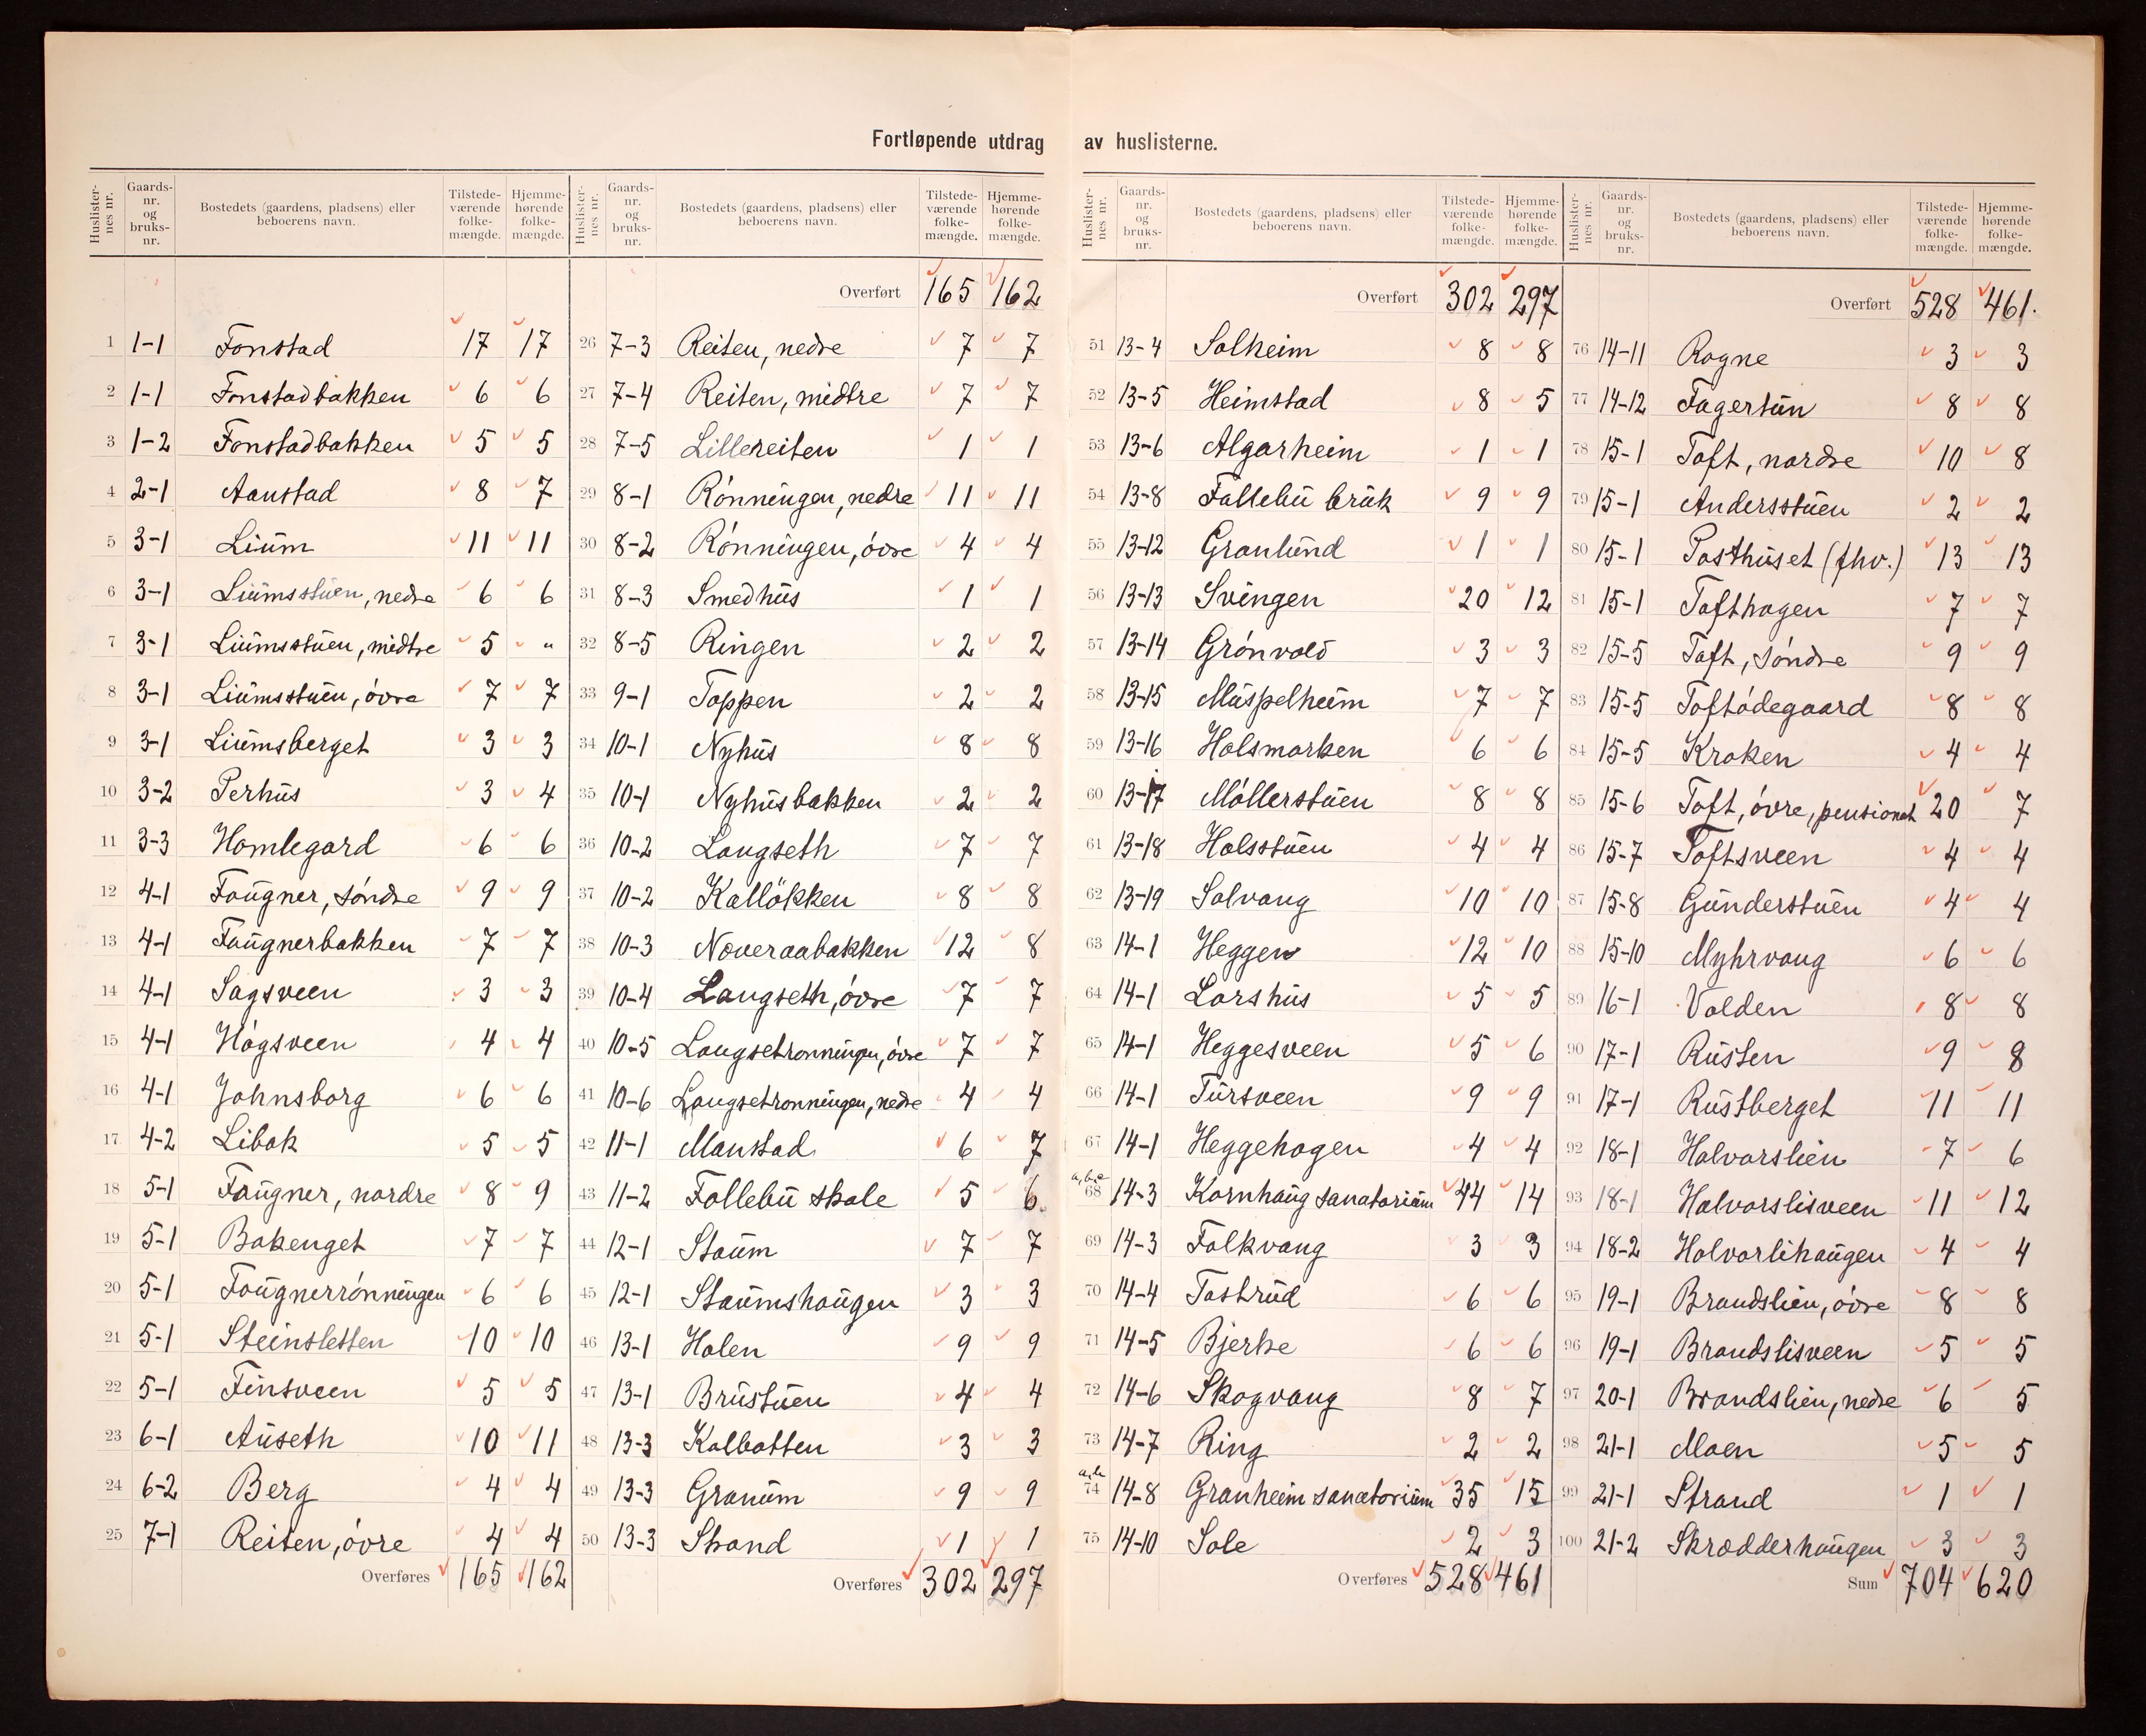 Fortløpende utdrag av huslisterne.
Huslisternes nr. Gaardsnr. og bruksnr. Bostedets (gaardens, pladsens) eller beboerens navn. Tilstedeværende folkemængde. Hjemmehørende folkemængde.
1 1-1 Fonstad 17 17
2 1-1 Fonstadbakken 6 6
3 1-2 Fonstadbakken 5 5
4 2-1 Aanstad 8 7
5 3-1 Lium 11 11
6 3-1 Liumsstuen, nedre 6 6
7 3-1 Liumsstuen, midtre 5 "
8 3-1 Liumsstuen, övre 7 7
9 3-1 Liumsberget 3 3
10 3-2 Perhus 3 4
11 3-3 Homlegard 6 6
12 4-1 Fougner, söndre 9 9
13 4-1 Faugnerbakken 7 7
14 4-1 Sagsveen 3 3
15 4-1 Högsveen 4 4
16 4-1 Johnsborg 6 6
17 4-2 Libak 5 5
18 5-1 Faugner, nordre 8 9
19 5-1 Bakenget 7 7
20 5-1 Fougnerrönningen 6 6
21 5-1 Steinsletten 10 10
22 5-1 Finsveen 5 5
23 6-1 Auseth 10 11
24 6-2 Berg 4 4
25 7-1 Reiten, övre 4 4
Overføres 165 162
Huslisternes nr. Gaardsnr. og bruksnr. Bostedets (gaardens, pladsens) eller beboerens navn. Tilstedeværende folkemængde. Hjemmehørende folkemængde.
Overført 165 162
26 7-3 Reiten, nedre 7 7
27 7-4 Reiten, midtre 7 7
28 7-5 Lillereiten 1 1
29 8-1 Rönningen, nedre 11 11
30 8-2 Rönningen, övre 4 4
31 8-3 Smedhus 1 1
32 8-5 Ringen 2 2
33 9-1 Toppen 2 2
34 10-1 Nyhus 8 8
35 10-1 Nyhusbakken 2 2
36 10-2 Langseth 7 7
37 10-2 Kallökken 8 8
38 10-3 Noveraabakken 12 8
39 10-4 Langseth, övre 7 7
40 10-5 Langsetronningen, övre 7 7
41 10-6 Langsetronningen, nedre 4 4
42 11-1 Manstad 6 7
43 11-2 Follebu skole 5 6
44 12-1 Staum 7 7
45 12-1 Staumshaugen 3 3
46 13-1 Holen 9 9
47 13-1 Brustuen 4 4
48 13-3 Kolbotten 3 3
49 13-3 Granum 9 9
50 13-3 Strand 1 1
Overføres 302 297
Huslisternes nr. Gaardsnr. og bruksnr. Bostedets (gaardens, pladsens) eller beboerens navn. Tilstedeværende folkemængde. Hjemmehørende folkemængde.
Overført 302 297
51 13-4 Solheim 8 8
52 13-5 Heimstad 8 5
53 13-6 Algarheim 1 1
54 13-8 Follebu bruk 9 9
55 13-12 Granlund 1 1
56 13-13 Svingen 20 12
57 13-14 Grönvold 3 3
58 13-15 Muspelheim 7 7
59 13-16 Holsmarken 6 6
60 13-17 Möllerstuen 8 8
61 13-18 Holsstuen 4 4
62 13-19 Solvang 10 10
63 14-1 Heggen 12 10
64 14-1 Larshus 5 5
65 14-1 Heggesveen 5 6
66 14-1 Tursveen 9 9
67 14-1 Heggehagen 4 4
a,b,c 68 14-3 Kornhaug sanatorium 44 14
69 14-3 Folkvang 3 3
70 14-4 Tostrud 6 6
71 14-5 Bjerke 6 6
72 14-6 Skogvang 8 7
73 14-7 Ring 2 2
a,b 74 14-8 Granheim sanatorium 35 15
75 14-10 Sole 2 3
Overføres 528 461
Huslisternes nr. Gaardsnr. og bruksnr. Bostedets (gaardens, pladsens) eller beboerens navn. Tilstedeværende folkemængde. Hjemmehørende folkemængde.
Overført 528 461.
76 14-11 Rogne 3 3
77 14-12 Fagertun 8 8
78 15-1 Toft, nordre 10 8
79 15-1 Andersstuen 2 2
80 15-1 Posthuset (fhv.) 13 13
81 15-1 Tofthagen 7 7
82 15-5 Toft, söndre 9 9
83 15-5 Toftödegaard 8 8
84 15-5 Kroken 4 4
85 15-6 Toft, övre, pensionat 20 7
86 15-7 Toftsveen 4 4
87 15-8 Gunderstuen 4 4
88 15-10 Myhrvang 6 6
89 16-1 Volden 8 8
90 17-1 Rusten 9 8
91 17-1 Rustberget 11 11
92 18-1 Halvorslien 7 6
93 18-1 Halvorslisveen 11 12
94 18-2 Halvorlihaugen 4 4
95 19-1 Brandslien, övre 8 8
96 19-1 Brandslisveen 5 5
97 20-1 Brandslien, nedre 6 5
98 21-1 Moen 5 5
99 21-1 Strand 1 1
100 21-2 Skrædderhaugen 3 3
Sum 704 620